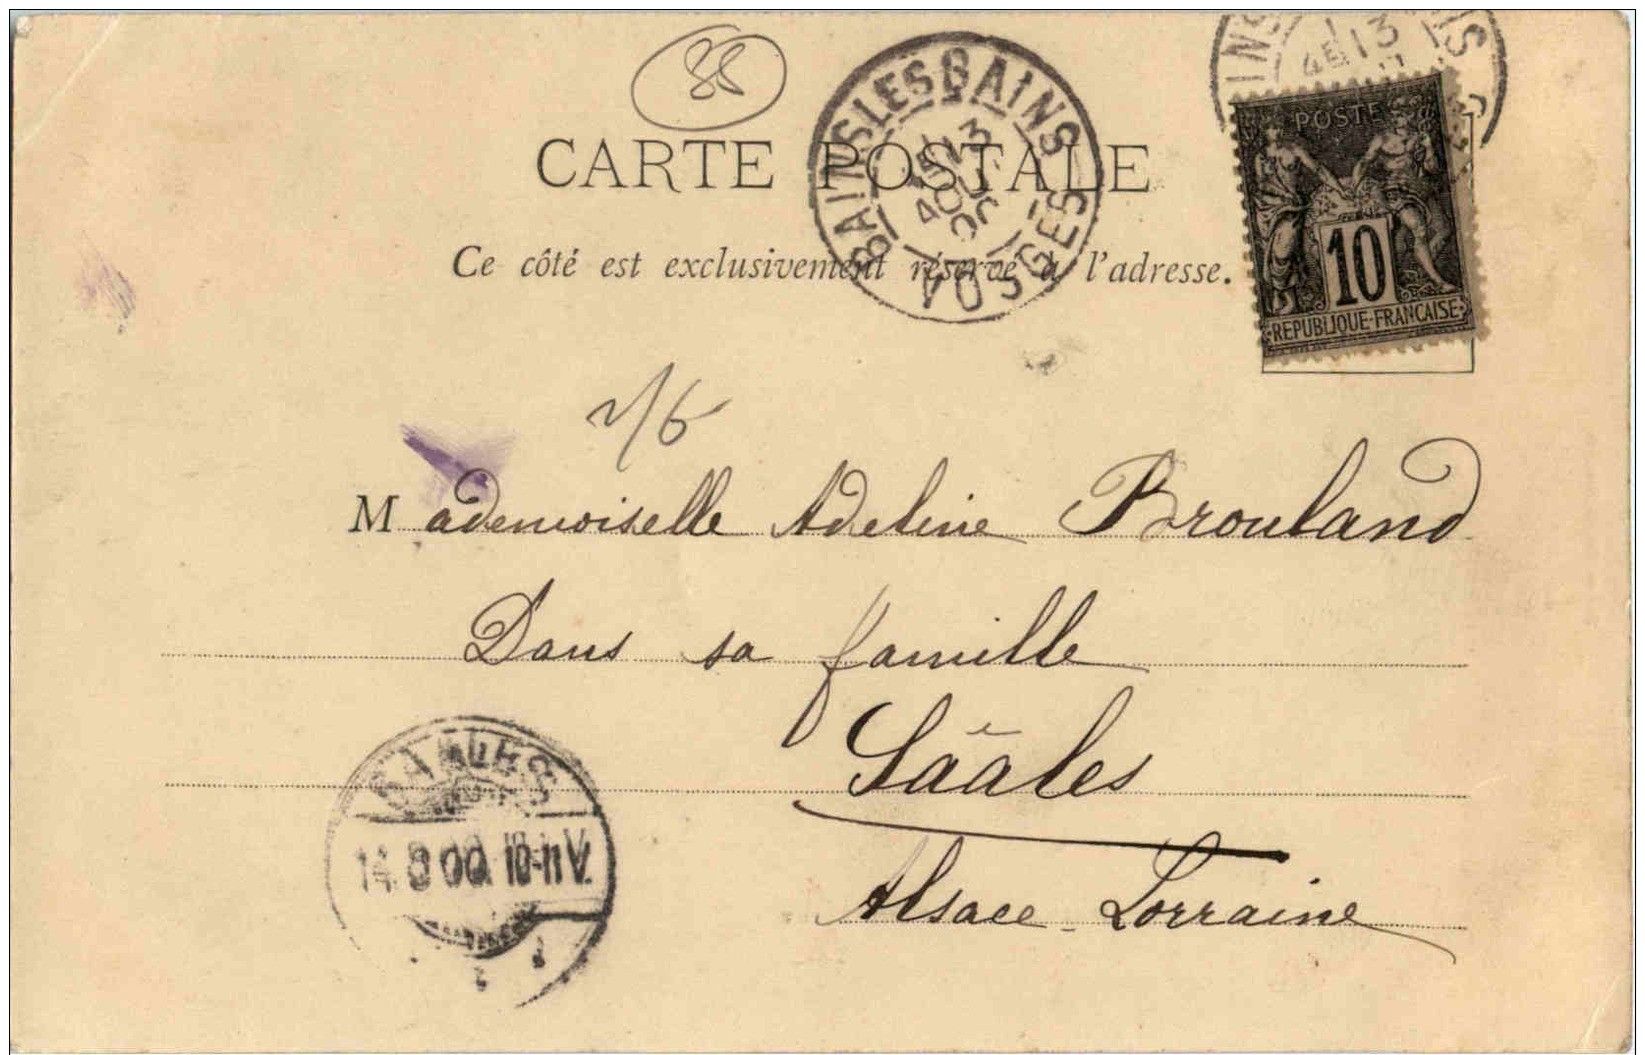 88
BAINS LES BAINS
4E 13
AOUT
00
VOSGES
4E 13
POSTE
10
REPUBLIQUE FRANCAISE
CARTE POSTALE
Ce côté est exclusivement réservé à l'adresse.
Mademoiselle Adeline Brouland
Dans sa famille
Sââles
Alsace-Lorraine
SAALES
14.8 00. 10-11 V.